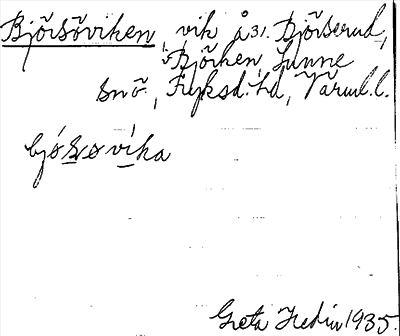 Björsöviken, vik å 31. Björserud,
i Björken, Sunne
snö, Fryksd. hd, Värml. l.
bjósøvíka
Greta Hedin 1935.